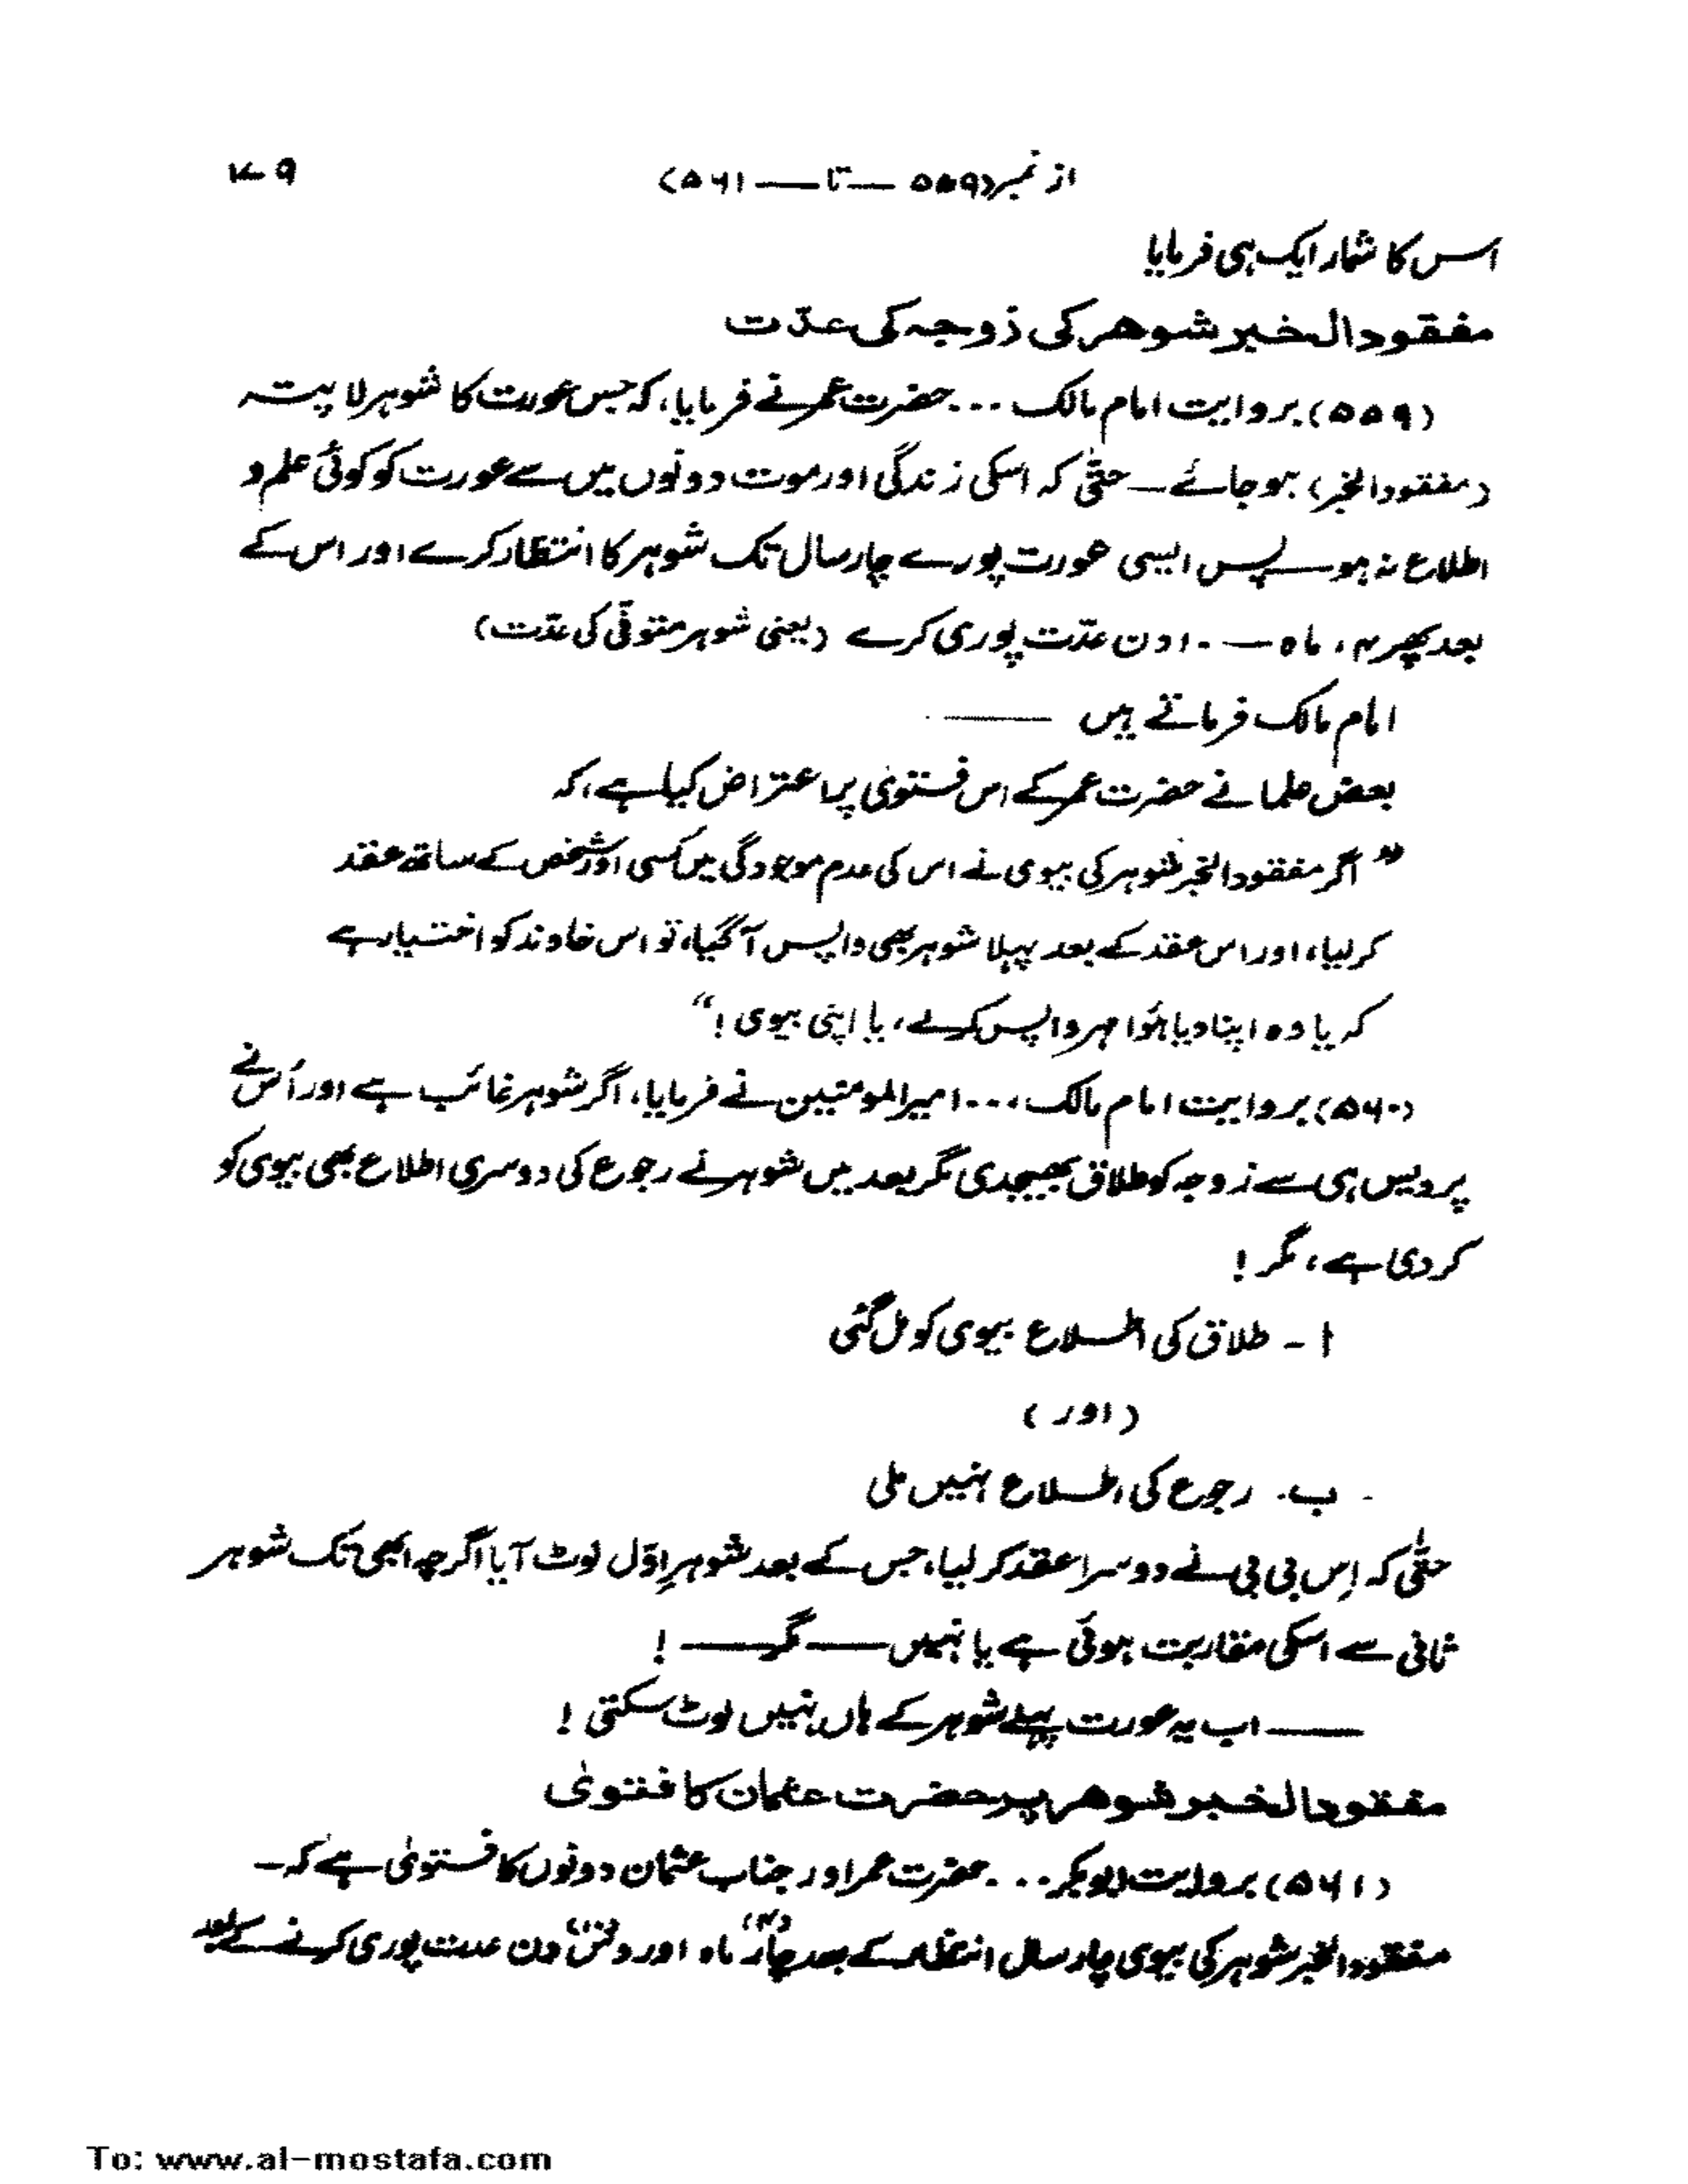 از نمبر (۵۵۹ — تا — ۵۶۱)
اس کا شمار ایک ہی فرمایا
مفقود الخبر شوھر کی زوجہ کی عدّت
(۵۵۹) بروایت امام مالک ... حضرت عمر نے فرمایا، کہ جس عورت کا شوہر لا پتہ
(مفقود الخبر) ہو جائے — حتیٰ کہ اسکی زندگی اور موت دونوں میں سے عورت کو کوئی علم و
اطلاع نہ ہو — پس ایسی عورت پورے چار سال تک شوہر کا انتظار کرے اور اس کے
بعد پھر ۴، ماہ — ۱۰ دن عدّت پوری کرے (یعنی شوہر متوفّی کی عدّت)
امام مالک فرماتے ہیں ———
بعض علما نے حضرت عمر کے اس فتویٰ پر اعتراض کیا ہے، کہ
”اگر مفقود الخبر شوہر کی بیوی نے اس کی عدم موجودگی میں کسی اور شخص کے ساتھ عقد
کر لیا، اور اس عقد کے بعد پہلا شوہر بھی واپس آ گیا، تو اس خاوند کو اختیار ہے
کہ یا وہ اپنا دیا ہؤا مہر واپس کرلے، یا اپنی بیوی!“
(۵۶۰) بروایت امام مالک، ... امیر المومنین نے فرمایا، اگر شوہر غائب ہے اور اُس نے
پردیس ہی سے زوجہ کو طلاق بھیجدی مگر بعد میں شوہر نے رجوع کی دوسری اطلاع بھی بیوی کو
کر دی ہے، مگر!
ا ۔ طلاق کی اطلاع بیوی کو مل گئی
(اور)
ب ۔ رجوع کی اطلاع نہیں ملی
حتّٰی کہ اِس بی بی نے دوسرا عقد کر لیا، جس کے بعد شوہرِ اوّل لوٹ آیا اگرچہ ابھی تک شوہر
ثانی سے اسکی مقاربت ہوئی ہے یا نہیں — مگر — !
——— اب یہ عورت پہلے شوہر کے ہاں نہیں لوٹ سکتی!
مفقود الخبر شوھر پر حضرت عثمان کا فتویٰ
(۵۶۱) بروایت ابوبکر ... حضرت عمر اور جناب عثمان دونوں کا فتویٰ ہے کہ —
مفقود الخبر شوہر کی بیوی چار سال انتظار کے بعد چار (۴) ماہ اور دس (۱۰) دن عدت پوری کرنے کے بعد
To: www.al-mostafa.com